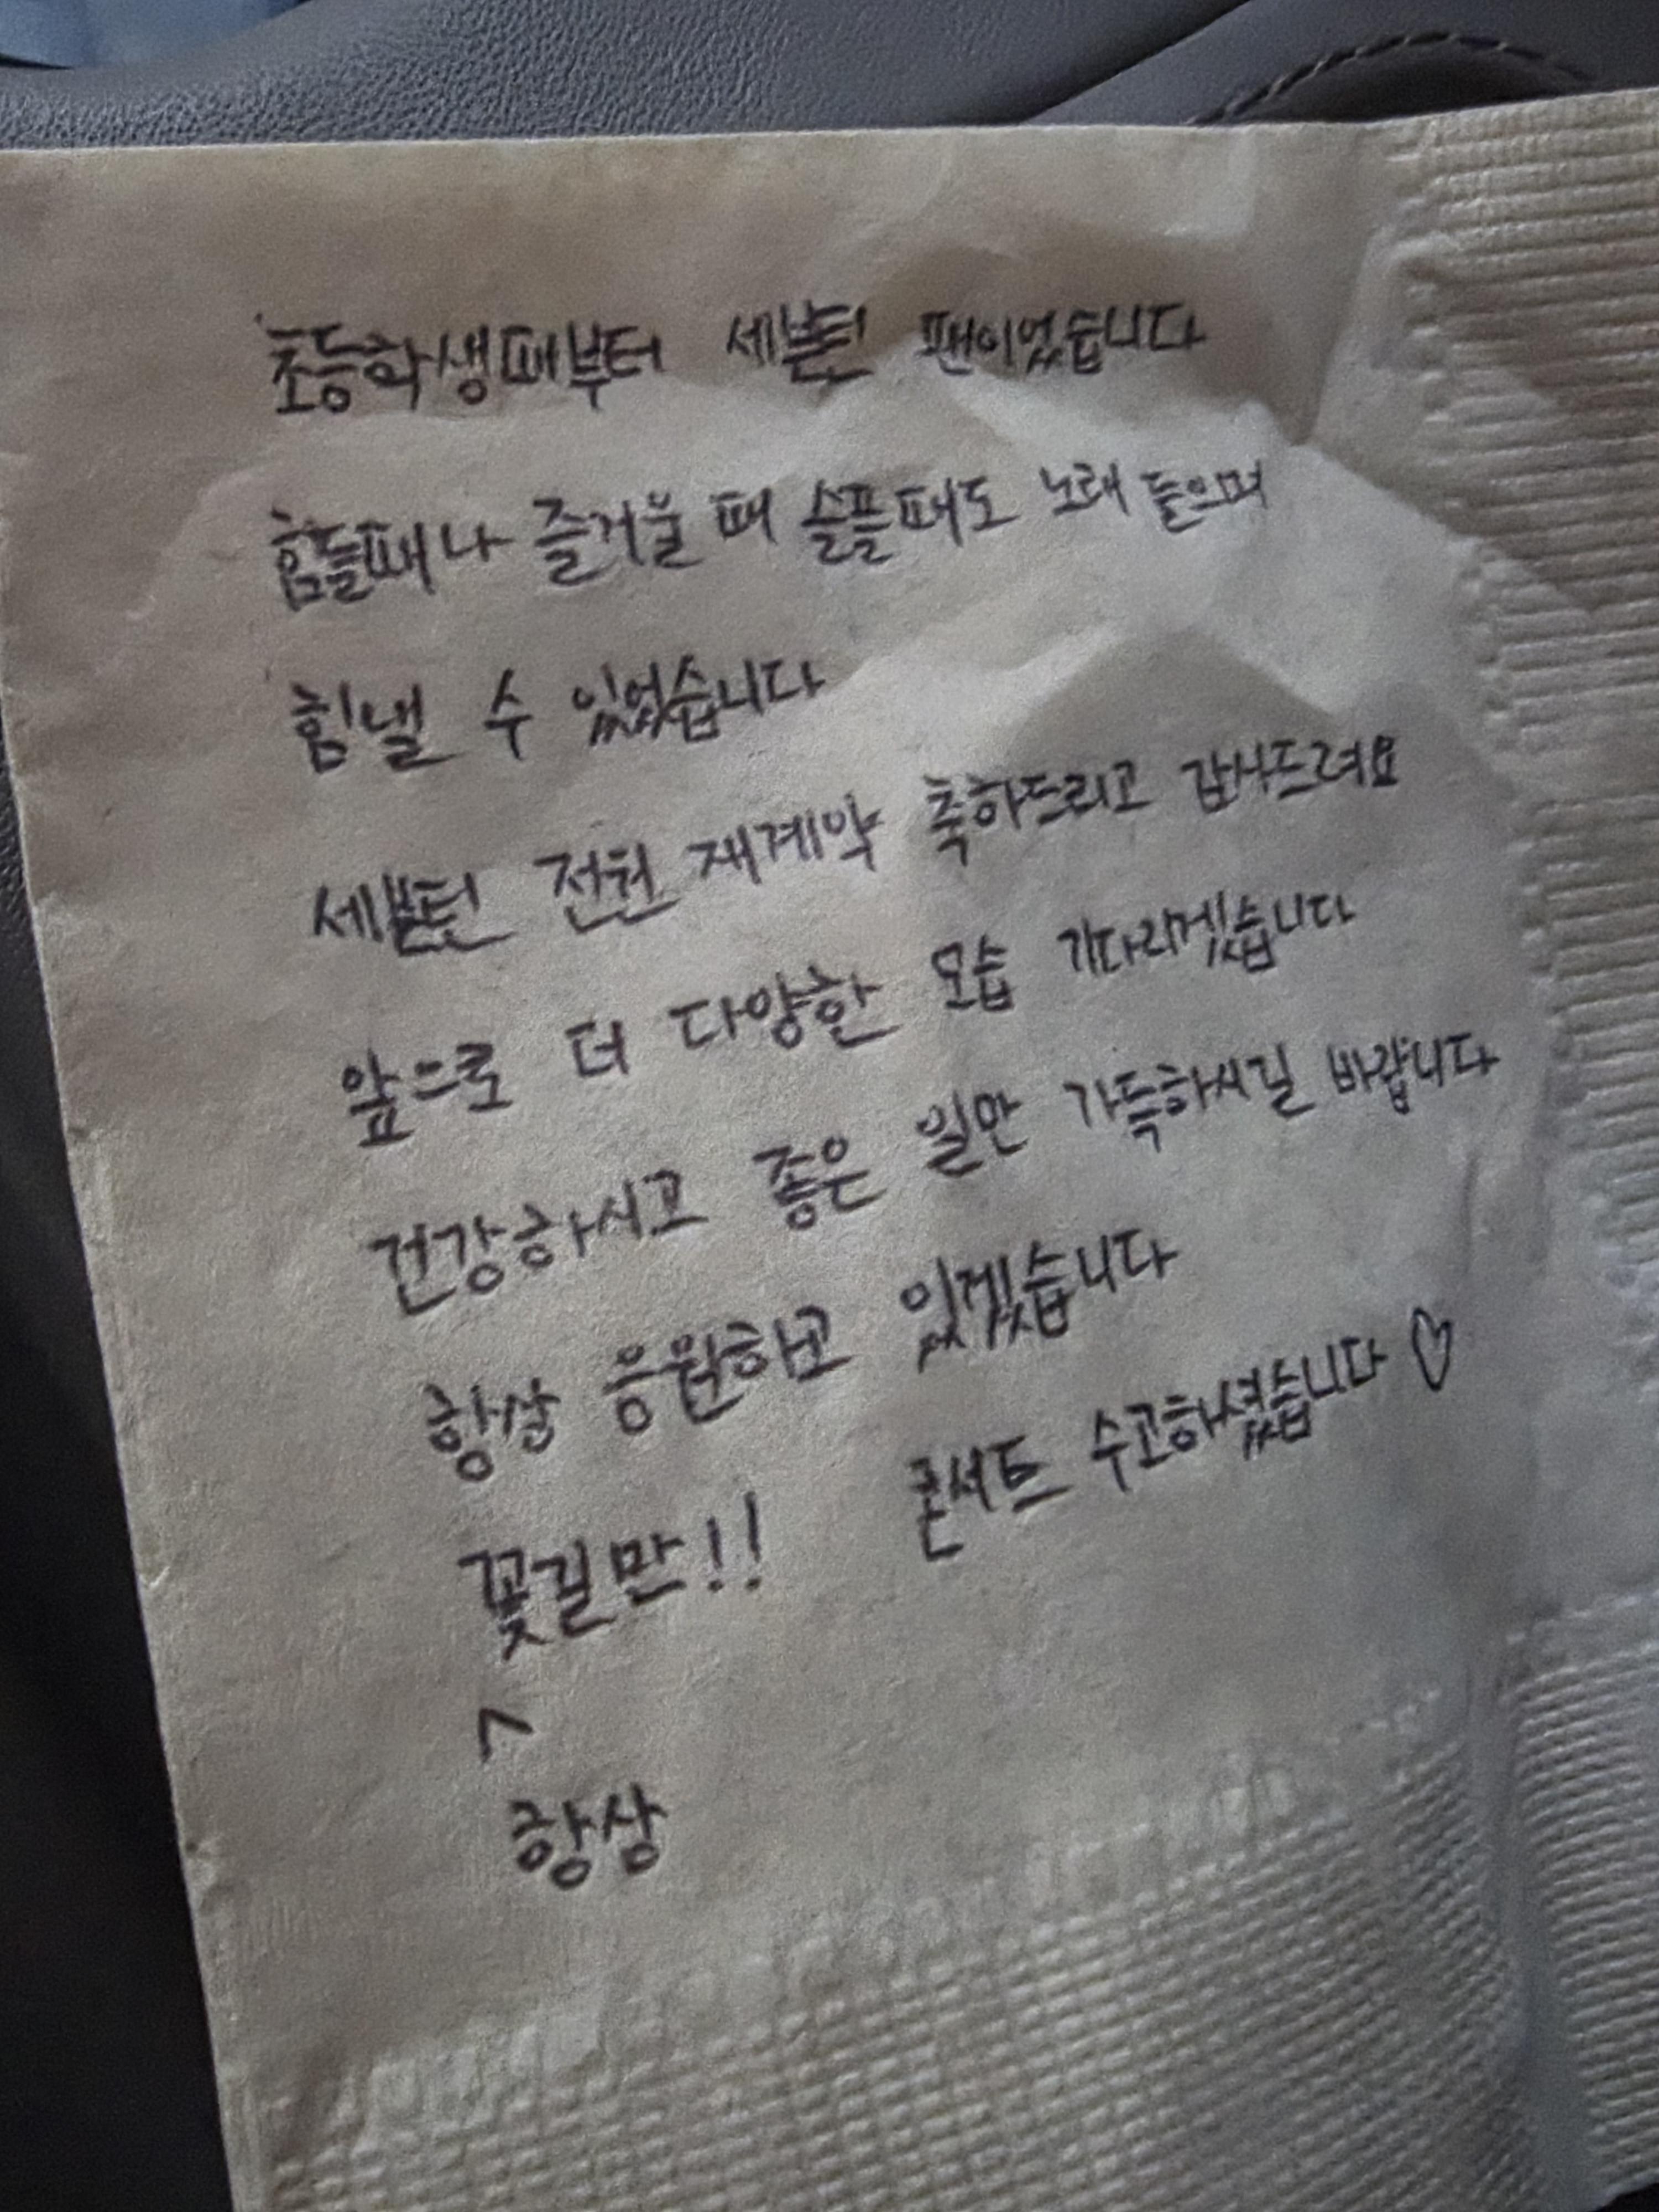 초등학생때부터 세븐틴 팬이었습니다
힘들때나 즐거울 때 슬플때도 노래 들으며
힘낼 수 있었습니다
세븐틴 전원 재계약 축하드리고 감사드려요
앞으로 더 다양한 모습 기다리겠습니다
건강하시고 좋은 일만 가득하시길 바랍니다
항상 응원하고 있겠습니다
꽃길만!! 콘서트 수고하셨습니다 ♡
^
항상